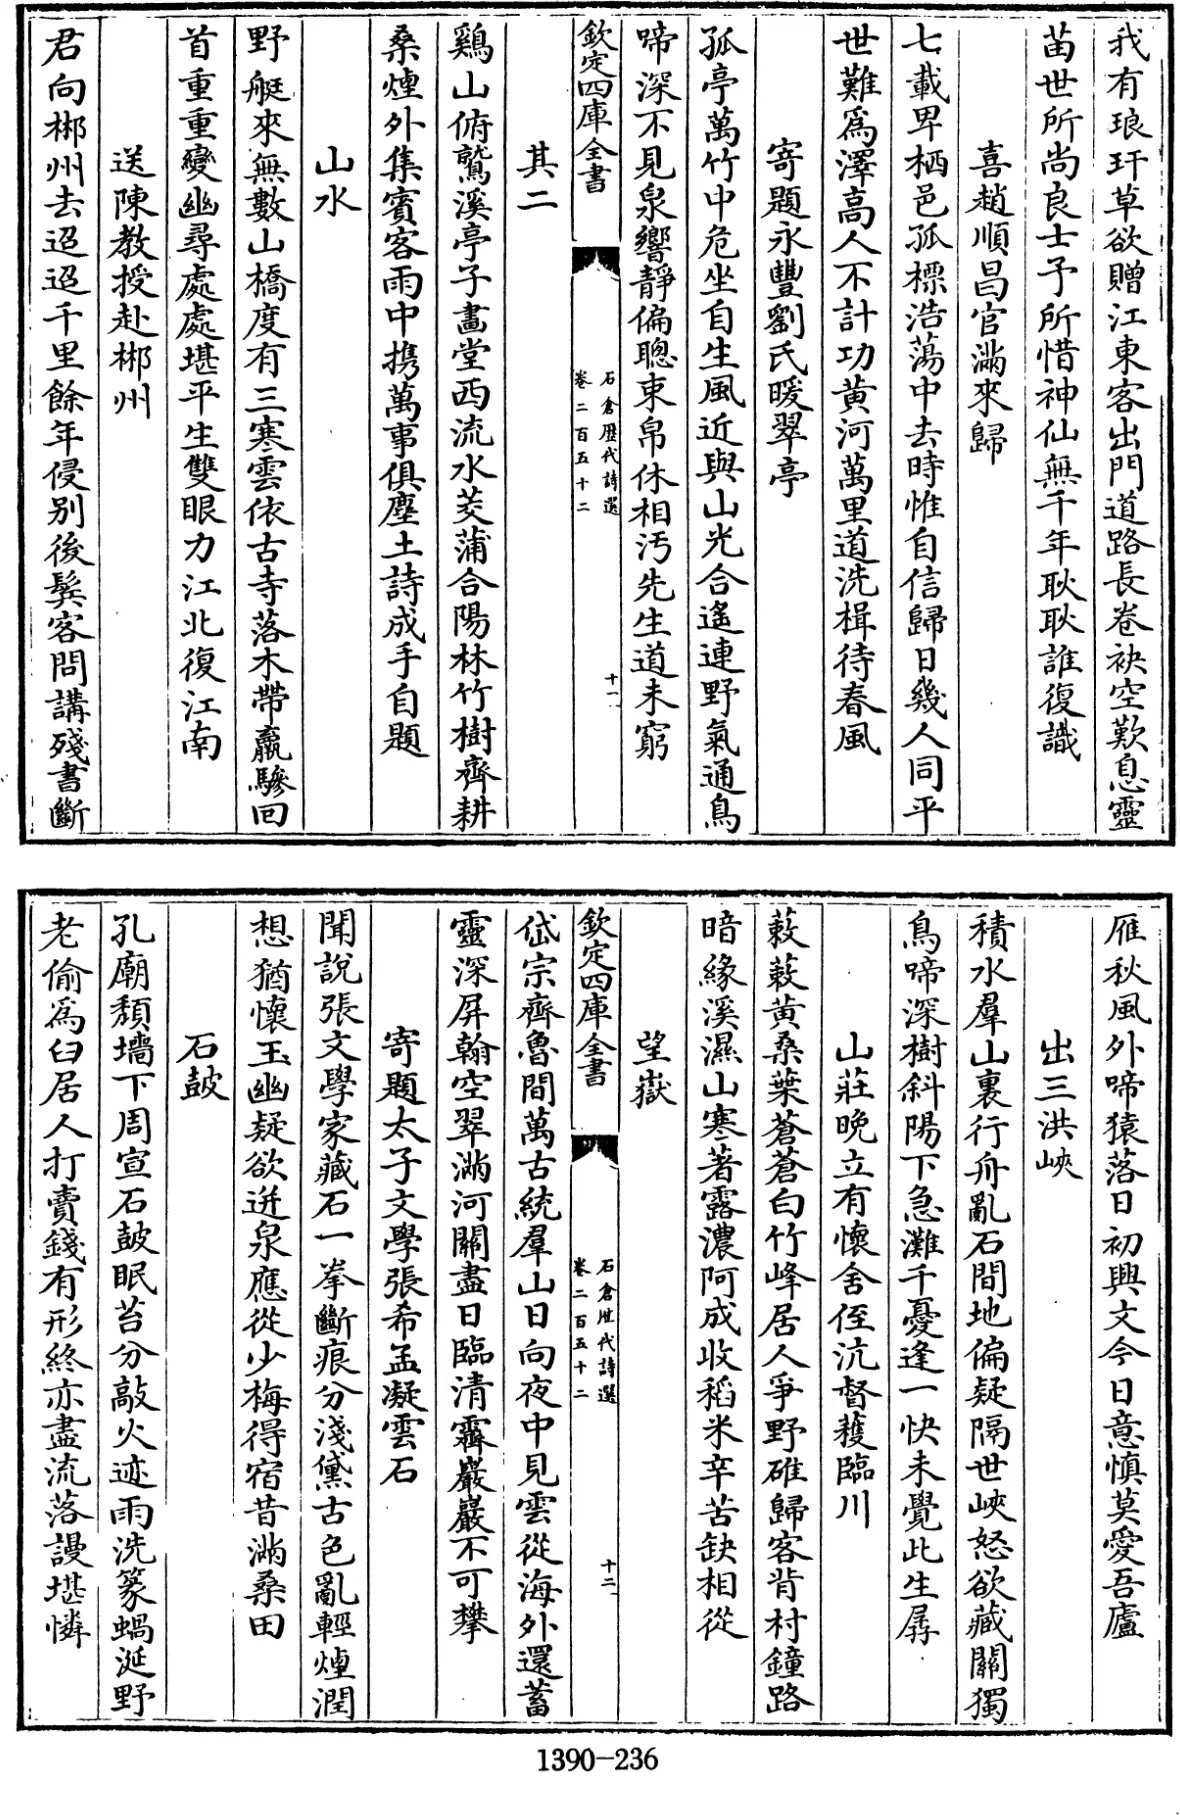 我有琅玕草欲贈江東客出門道路長卷袂空歎息靈
苖世所尚良士予所惜神仙無千年耿耿誰復識
喜趙順昌官滿來歸
七載卑栖邑孤標浩蕩中去時惟自信歸日幾人同平
世難爲澤高人不計功黄河萬里道洗楫待春風
寄題永豐劉氏暖翠亭
孤亭萬竹中危坐自生風近與山光合遙連野氣通鳥
啼深不見泉響靜偏聰束帛休相汚先生道未窮
欽定四庫全書
石倉歷代詩選
卷二百五十二
十一
其二
鷄山俯鷲溪亭子畵堂西流水芰蒲合陽林竹樹齊耕
桑煙外集賓客雨中携萬事俱塵土詩成手自題
山水
野艇來無數山橋度有三寒雲依古寺落木帶羸驂回
首重重變幽尋處處堪平生雙眼力江北復江南
送陳教授赴郴州
君向郴州去迢迢千里餘年侵别後鬂客問講殘書斷
雁秋風外啼猿落日初興文今日意慎莫愛吾廬
出三洪峽
積水羣山裏行舟亂石間地偏疑隔世峽怒欲藏關獨
鳥啼深樹斜陽下急灘千憂逢一快未覺此生孱
山莊晚立有懷舍侄沆督穫臨川
蔌蔌黄桑葉蒼蒼白竹峰居人爭野碓歸客背村鐘路
暗緣溪濕山寒著露濃阿成收稻米辛苦缺相從
望嶽
欽定四庫全書
石倉歷代詩選
卷二百五十二
十二
岱宗齊魯間萬古統羣山日向夜中見雲從海外還蓄
靈深屏翰空翠滿河關盡日臨清霽巖巖不可攀
寄題太子文學張希孟凝雲石
聞說張文學家藏石一拳斷痕分淺黛古色亂輕煙潤
想猶懷玉幽疑欲迸泉應從少梅得宿昔滿桑田
石鼓
孔廟頽墻下周宣石鼓眠苔分敲火迹雨洗篆蝸涎野
老偷爲臼居人打賣錢有形終亦盡流落謾堪憐
1390-236